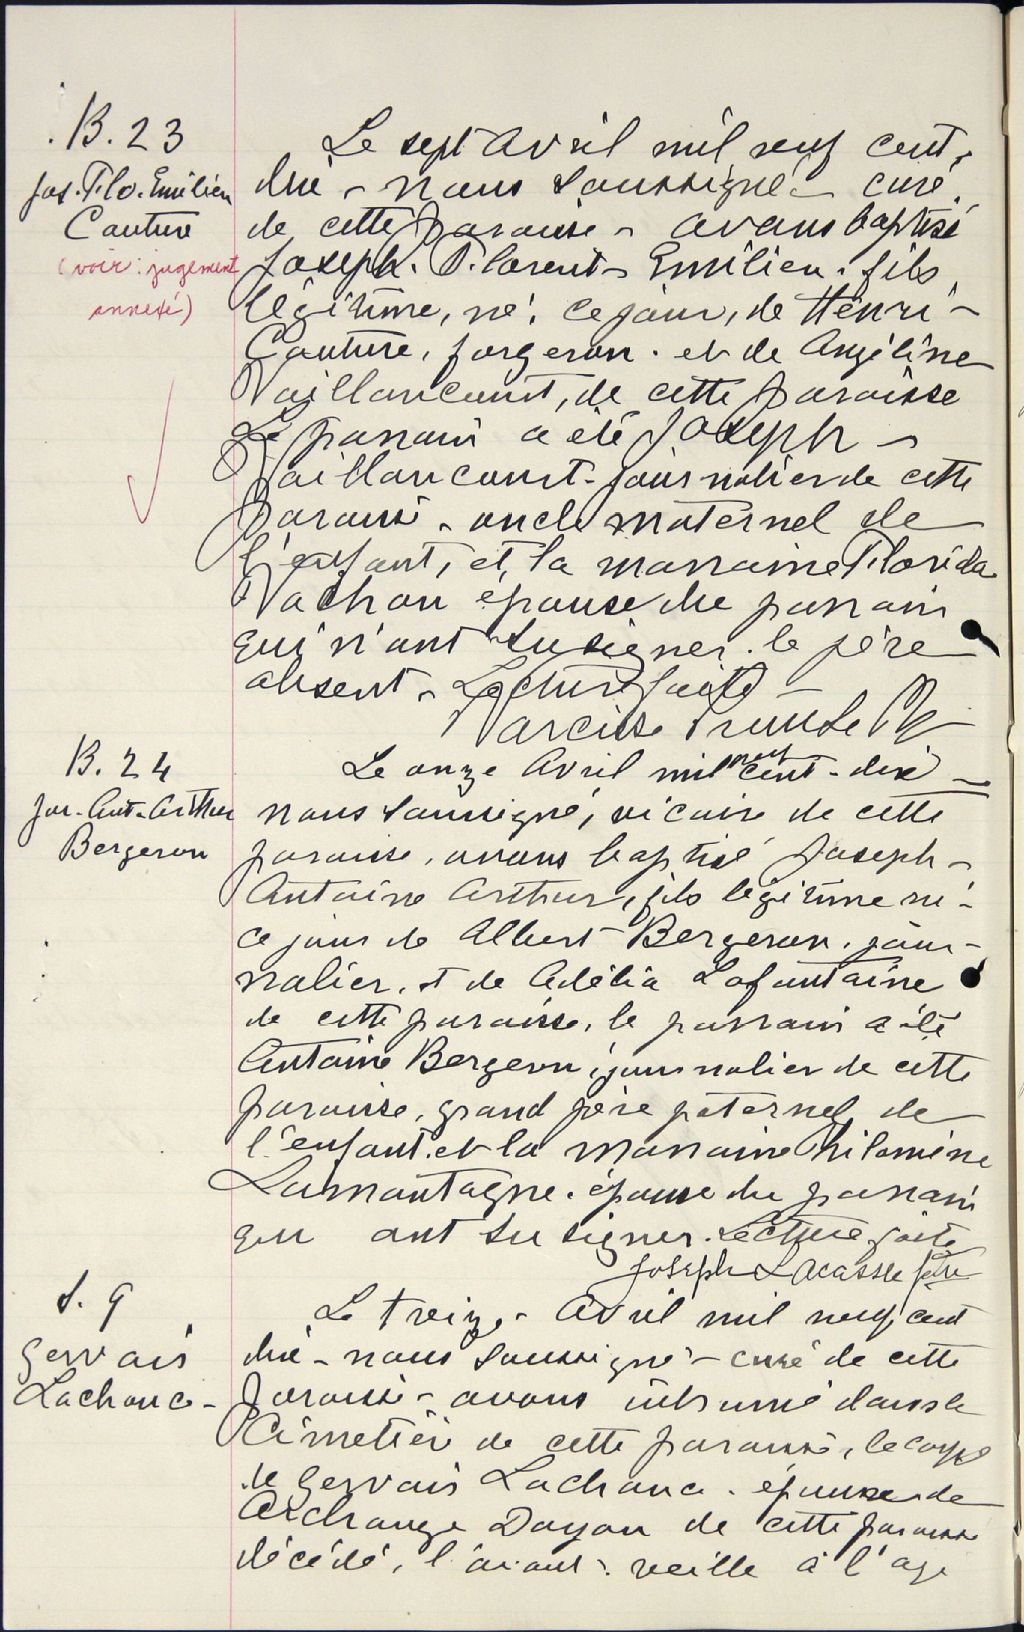 B. 23
Jos. Flo. Emilien
Couture
(voir : jugement
annexé)
Le sept Avril mil neuf cent
dix - nous soussigné - curé
de cette paroisse - avons baptisé
Joseph. Florent - Emilien. fils
légitime, né, ce jour, de Henri -
Couture, forgeron. et de Angéline
Vaillancourt, de cette paroisse
Le parrain a été Joseph -
Vaillancourt - journalier de cette
paroisse - oncle maternel de
l'enfant, et, la marraine Florida
Vachon épouse du parrain
qui n'ont su signer. le père
absent. Lecture faite -
Narcisse Proulx Ptre
B. 24
Jos. Ant. Arthur
Bergeron
Le onze Avril mil neuf cent - dix -
nous soussigné, vicaire de cette
paroisse, avons baptisé Joseph -
Antoine Arthur, fils légitime né -
ce jour de Albert Bergeron, jour-
nalier, et de Adélia Lafontaine
de cette paroisse, le parrain a été
Antoine Bergeron, journalier de cette
paroisse, grand père paternel de
l'enfant. et la marraine Philomène
Lamontagne. épouse du parrain
qui ont su signer. Lecture faite
Joseph Lacasse ptre
S. 9
Gervais
Lachance -
Le treize - Avril mil neuf cent
dix - nous soussigné - curé de cette
paroisse - avons inhumé dans le
Cimetière de cette paroisse, le corps
de Gervais Lachance. époux de
Archange Doyon de cette paroisse
décédé, l'avant - veille à l'age